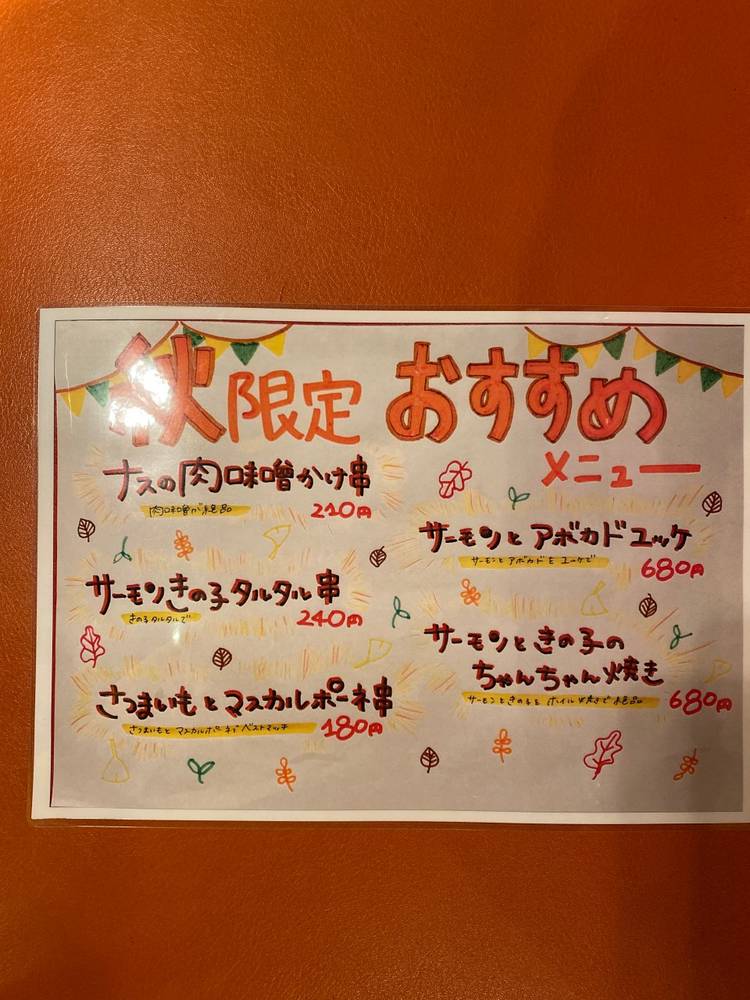 秋限定 おすすめ
メニュー
ナスの肉味噌かけ串
肉味噌が絶品
210円
サーモンきの子タルタル串
きの子タルタルで
240円
さつまいもとマスカルポーネ串
さつまいもと マスカルポーネで ベストマッチ
180円
サーモンとアボカドユッケ
サーモンとアボカドを ユッケで
680円
サーモンときの子の
ちゃんちゃん焼き
サーモンときの子を ホイル焼きで絶品
680円